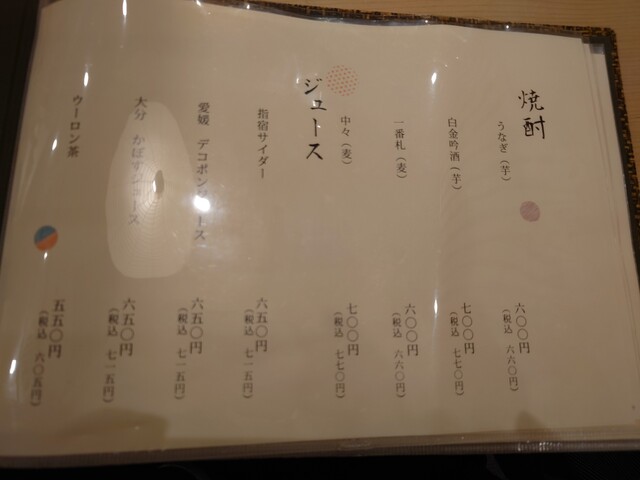 焼酎
うなぎ（芋）
六〇〇円
（税込 六六〇円）
白金吟酒（芋）
七〇〇円
（税込 七七〇円）
一番札（麦）
六〇〇円
（税込 六六〇円）
中々（麦）
七〇〇円
（税込 七七〇円）
ジュース
指宿サイダー
六五〇円
（税込 七一五円）
愛媛 デコポンジュース
六五〇円
（税込 七一五円）
大分 かぼすジュース
六五〇円
（税込 七一五円）
ウーロン茶
五五〇円
（税込 六〇五円）